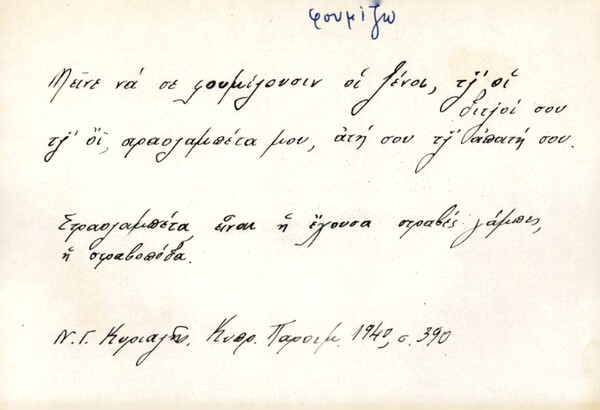 φουμίζω
Μεῖνε νά σε φουμίσουσιν οἱ ξένοι, τζ̆' οἱ
διτζ̆οί σου
τζ̆' ὄϊ, στραολαμπέτα μου, ἀτή σου τζ̆' ἀπατή σου.
Στραολαμπέτα εἶναι ἡ ἔχουσα στραβές λάμπες,
ἡ στραβοπόδα.
Ν. Γ. Κυριαζῆς, Κυπρ. Παροιμ. 1940, σ. 390